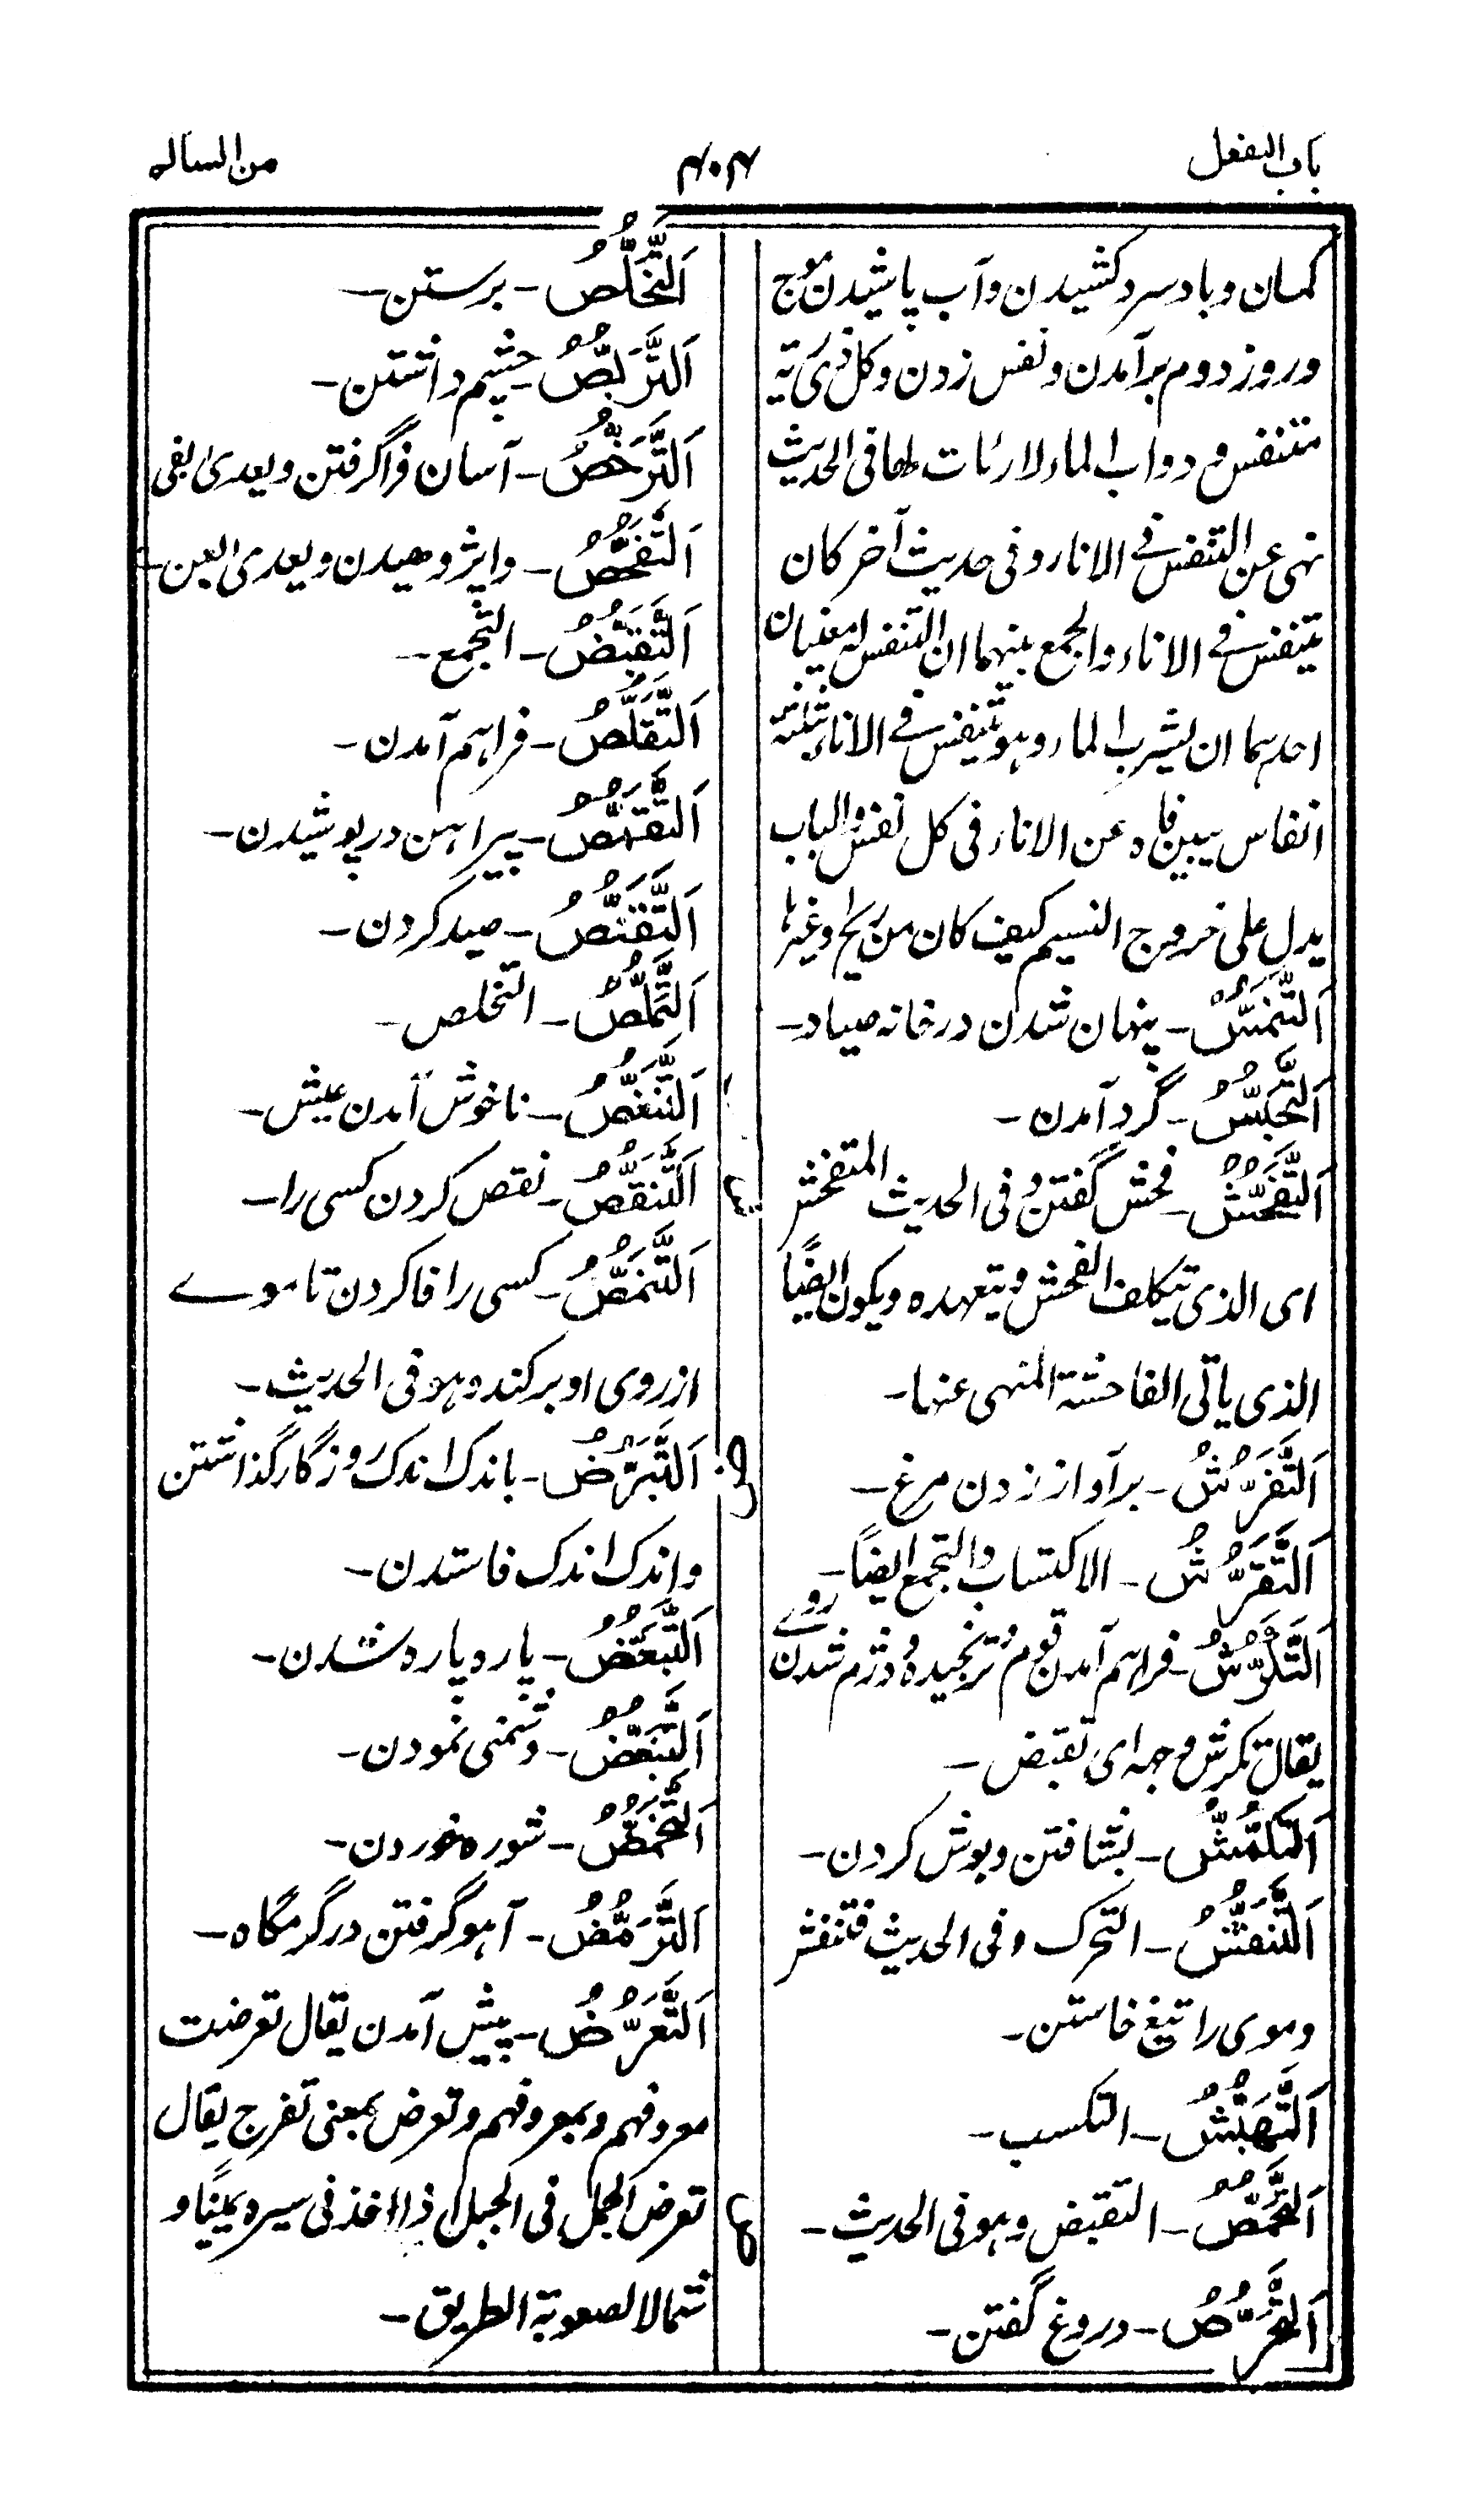 باب التفعل
۴۰۴
من السالم
کمان و باد سرد کشیدن و آب پاشیدن موج
و روز دوم برآمدن و نفس زدن و کل ذی رئة
متنفس و دواب الماء لا رئات لها فی الحدیث
نهی عن التنفس فی الاناء و فی حدیث آخر کان
یتنفس فی الاناء و الجمع بینهما ان التنفس له معنیان
احدهما ان یشرب الماء و هو یتنفس فی الاناء ثلثة
انفاس یبین فاه عن الاناء فی کل نفس و الباب
یدل علی خروج النسیم کیف کان من ریح او غیرها
اَلتَّنَمُّسُ - پنهان شدن در خانه صیاد -
اَلتَّحَبُّسُ - گرد آمدن -
اَلتَّفَحُّشُ - فحش گفتن و فی الحدیث المتفحش
ای الذی یتکلف الفحش و یتعهده و یکون ایضًا
الذی یاتی الفاحشة المنهی عنها -
اَلتَّفَرُّشُ - برآواز زدن مرغ -
اَلتَّقَرُّشُ - الاکتساب و التجمع ایضاً -
اَلتَّکَرُّشُ - فراهم آمدن قوم و ترنجیده و دژم شدن روے
یقال تکرش وجهه ای تقبض -
اَلتَّکَمُّشُ - بشتافتن و بوش کردن -
اَلتَّنَفُّشُ - التحرک و فی الحدیث فتنفش
و موی را تیغ خاستن -
اَلتَّهَبُّشُ - التکسب -
اَلتَّحَمُّصُ - التقبض و هو فی الحدیث -
اَلتَّخَرُّصُ - دروغ گفتن -
اَلتَّخَلُّصُ - برستن -
اَلتَّرَبُّصُ - چشم داشتن -
اَلتَّرَخُّصُ - آسان فراگرفتن و یعدی بفی
اَلتَّفَحُّصُ - واپژوهیدن و یعدی بعن -
اَلتَّقَبُّصُ - التجمع -
اَلتَّقَلُّصُ - فراهم آمدن -
اَلتَّقَمُّصُ - پیراهن در پوشیدن -
اَلتَّقَنُّصُ - صید کردن -
اَلتَّمَلُّصُ - التخلص -
اَلتَّنَغُّصُ - ناخوش آمدن عیش -
اَلتَّنَقُّصُ - نقص کردن کسی را -
اَلتَّنَمُّصُ - کسی را فا کردن تا موے
از روی او برکند و هو فی الحدیث -
ض
اَلتَّبَرُّضُ - باندک اندک روزگار گذاشتن
و اندک اندک فاستدن -
اَلتَّبَعُّضُ - پاره پاره شدن -
اَلتَّبَغُّضُ - دشمنی نمودن -
اَلتَّحَمُّضُ - شوره خوردن -
اَلتَّرَمُّضُ - آهو گرفتن در گرمگاه -
اَلتَّعَرُّضُ - پیش آمدن یقال تعرضت
معروفهم و بمعروفهم و تعرض بمعنی تفرج یقال
تعرض الجمل فی الجبل اذا اخذ فی سیره یمینًا و
شمالا لصعوبة الطریق -